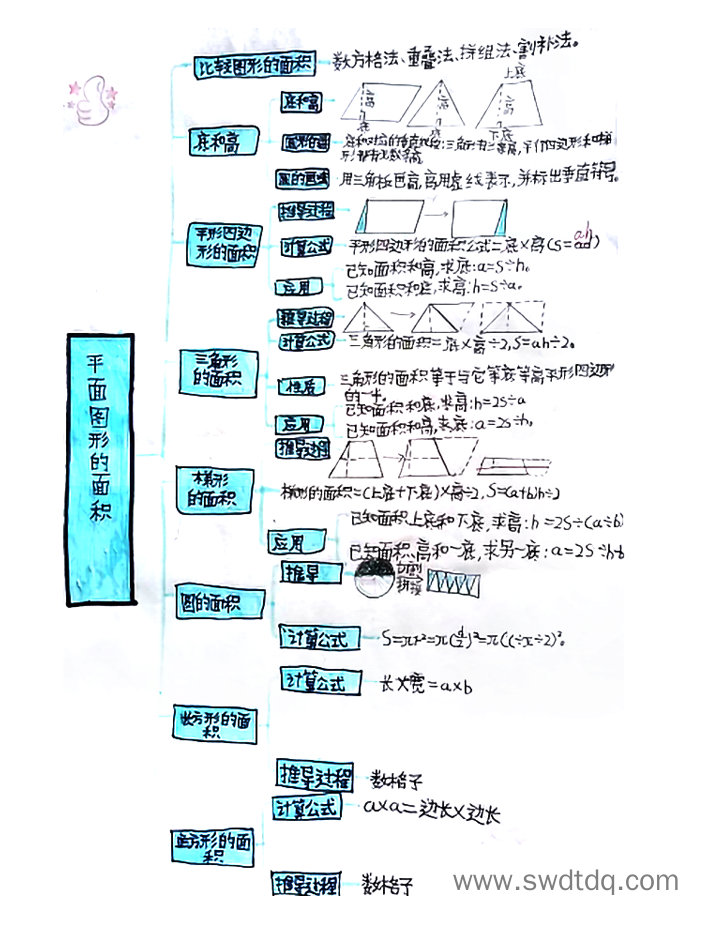 平面图形的面积
比较图形的面积
数方格法、重叠法、拼组法、割补法。
底和高
底和高
高
底
高
底
上底
高
下底
三角形有三条高,平行四边形和梯
形都有无数条高
用三角板画高,高用虚线表示,并标出垂直符号。
平形四边
形的面积
推导过程
计算公式
平形四边形的面积公式=底×高(S=ah)
应用
已知面积和高,求底:a=S÷h。
已知面积和底,求高:h=S÷a。
三角形
的面积
推导过程
计算公式
三角形的面积=底×高÷2,S=ah÷2。
性质
三角形的面积等于与它等底等高平形四边形
的一半。
应用
已知面积和底,求高:h=2S÷a
已知面积和高,求底:a=2s÷h。
梯形
的面积
推导过程
梯形的面积=(上底+下底)×高÷2,S=(a+b)h÷2
应用
已知面积、上底和下底,求高:h=2S÷(a÷b)
已知面积、高和一底,求另一底:a=2S÷h-b
圆的面积
推导
切割
拼接
计算公式
S=πr²=π(d/2)²=π(C÷π÷2)²。
长方形的面
积
计算公式
长×宽=a×b
推导过程
数格子
正方形的面
积
计算公式
a×a=边长×边长
推导过程
数格子
www.swdtdq.com